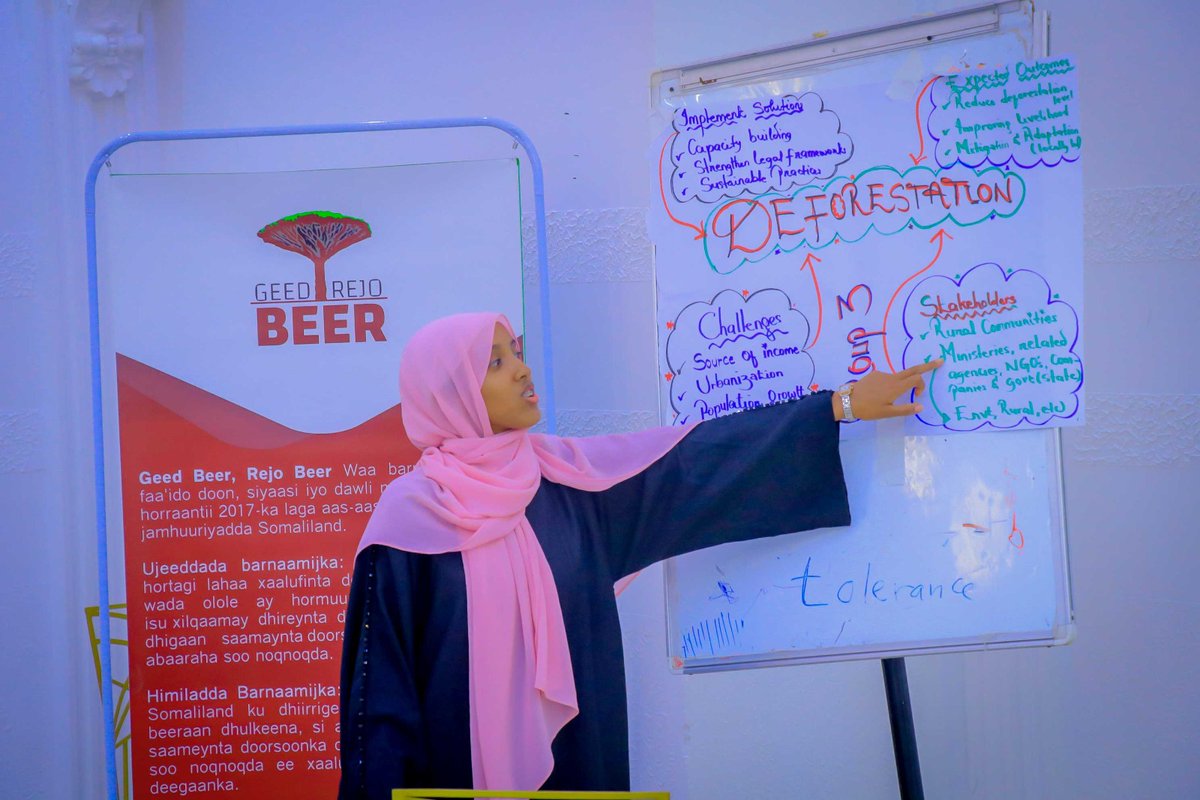 GEED REJO
BEER
Geed Beer, Rejo Beer Waa
faa'ido doon, siyaasi iyo dawli
horraantii 2017-ka laga aas-aas
jamhuuriyadda Somaliland.
Ujeeddada barnaamijka:
hortagi lahaa xaalufinta
wada olole ay hormuu
isu xilqaamay dhireynta
dhigaan saamaynta doors
abaaraha soo noqnoqda.
Himiladda Barnaamijka:
Somaliland ku dhiirrige
beeraan dhulkeena, si
saameynta doorsoonka
soo noqnoqda ee xaalu
deegaanka.
Implement Solution
Capacity building
Strengthen Legal frameworks
Sustainable Practices
Expected Outcomes
Reduce deforestation
level
Improving Livelihood
Mitigation & Adaptation
DEFORESTATION
Challenges
Source of income
Urbanization
Population Growth
Group 3
Stakeholders
Rural Communities
Ministeries, related
agencies, NGOs, Com-
panies & govt (state)
Envt, Rural, etc
tolerance